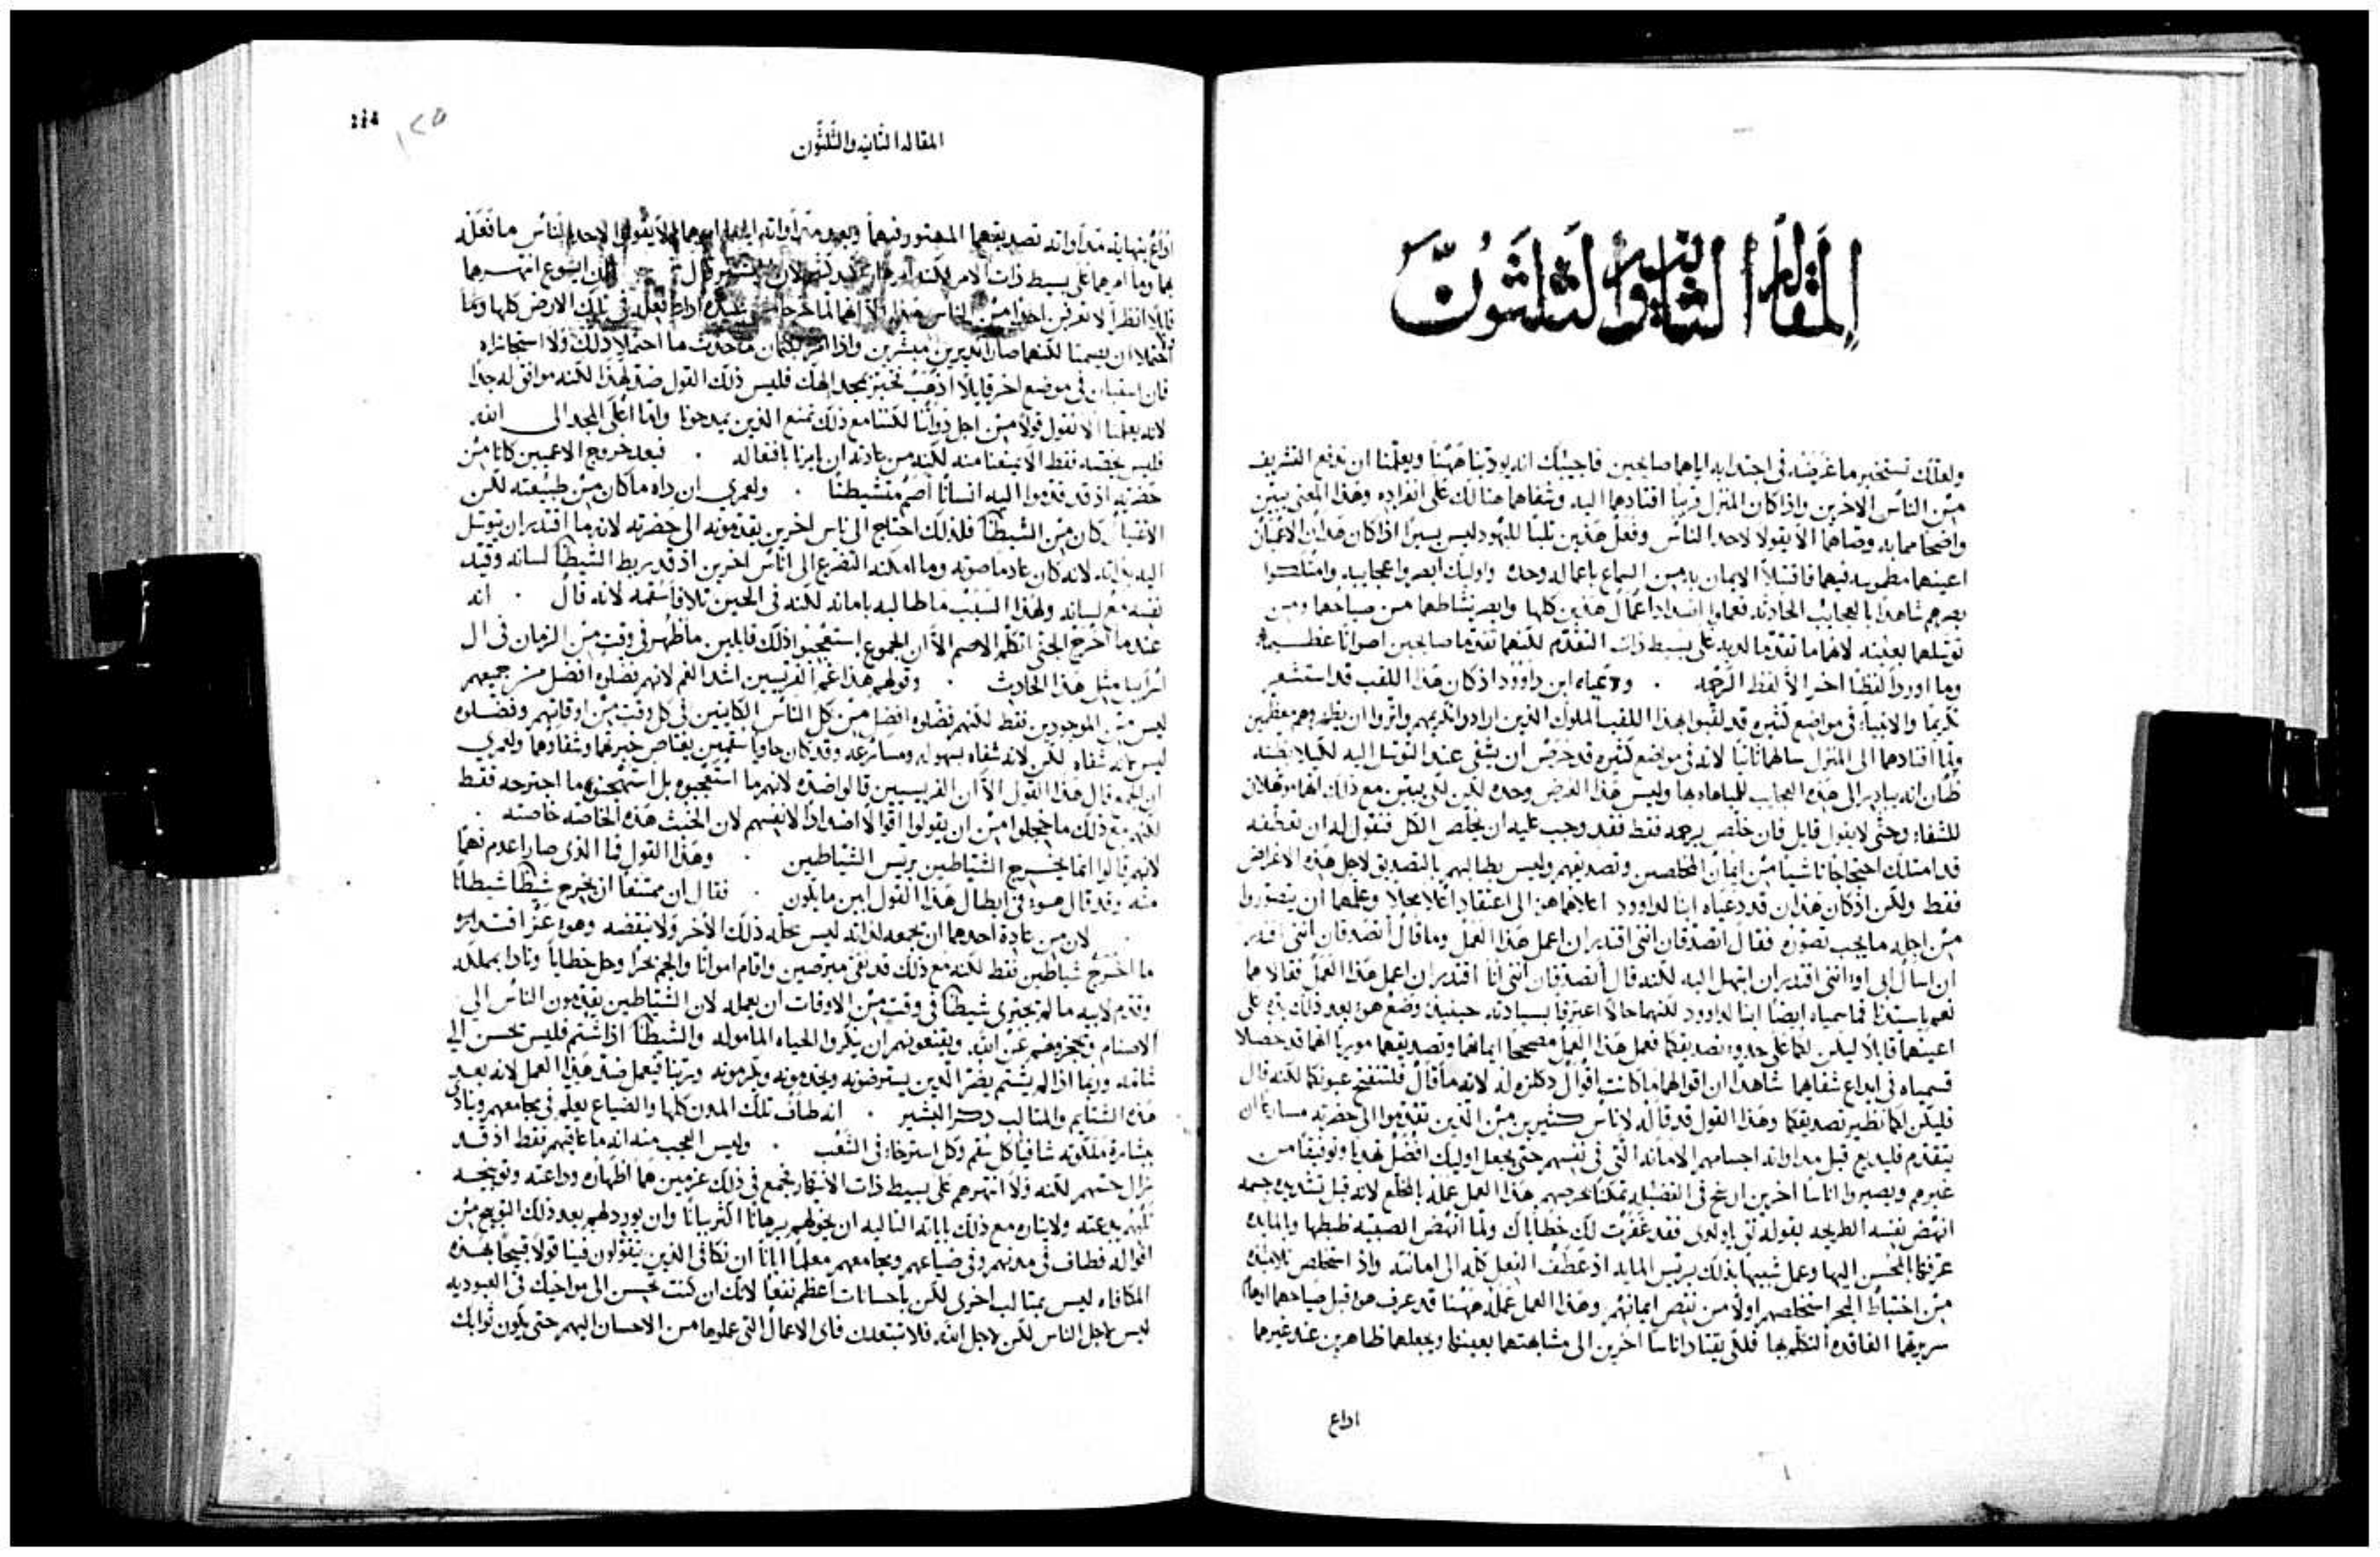 المقالة الثانية والثلثون
ولعلك تستخبر ما غرضه في اجتذابه اياهما صايحين فاجيبك انه يودبنا ههنا ويعلمنا ان ندفع التشريف
من الناس الاخرين واذا كان المنزل قريبًا اقتادهما اليه وشفاهما هنالك على انفراده وهذا المعنى يبين
واضحًا مما به وصاهما الا يقولا لاحد الناس وفعل هذين ثلبًا لليهود ليس يسيرًا اذا كان هذان الاعميان
اعينهما مطموسه فيهما فاقتبلا الايمان به من السماع باعماله وحده واوليك ابصروا عجايبه وامتلكوا
بصرهم شاهدًا بالعجايب الحادثه فعملوا اضداد اعمال هذين كلها وابصر نشاطهما من صياحهما ومن
توسلهما بعينه لانهما ما تقدما لديه على بسيط ذات التقدم لكنهما تقدما صايحين اصواتًا عظيمه
وما اوردا لفظًا اخر الا لفظ الرحمه . ودعياه ابن داوود اذ كان هذا اللقب قد استشعر
تكريمًا والانبياء في مواضع كثيره قد لقبوا بهذا اللقب الملوك الذين ارادوا تكريمهم واثروا ان يظهروهم معظمين
ولما اقتادهما الى المنزل سالهما ثانيًا لانه في مواضع كثيره قد حرص ان يشفي عند التوسل اليه لكيلا يظنه
ظان انه يبادر الى هذه العجايب للمباهاه بها وليس هذا الغرض وحده لكن لكي يبين مع ذلك انهما موهلان
للشفاء وحتى لا يقول قايل فان خلص برحمه فقط فقد وجب عليه ان يخلص الكل فنقول له ان تعطفه
قد امتلك احتجاجًا ناشيًا من ايمان المخلصين وتصديقهم وليس يطالبهم بالتصديق لاجل هذه الاغراض
فقط ولكن اذ كان هذان قد دعياه ابنًا لداوود اعلاهما هو الى اعتقاد اعلا محلا وعلمهما ان يتصوروا
من اجله ما يجب تصوره فقال اتصدقان انني اقتدر ان اعمل هذا العمل وما قال اتصدقان انني اقتدر
ان اسال ابي او انني اقتدر ان ابتهل اليه لكنه قال اتصدقان انني انا اقتدر ان اعمل هذا العمل فقالا هما
نعم يا سيدنا فما سمياه ايضًا ابنًا لداوود لكنهما حالا اعترفا بسيادته حينيذ وضع هو بعد ذلك يده على
اعينهما قايلا ليكن لكما على حدود تصديقكما فعمل هذا العمل مصححًا ايمانهما وتصديقهما موريًا انهما قد حصلا
قسيماه في ابداع شفاهما شاهدًا ان اقوالهما ما كانت اقوال دكلزه له لانه ما قال فلتنفتح عيونكما لكنه قال
فليكن لكما نظير تصديقكما وهذا القول قد قاله لاناس كثيرين من الذين تقدموا الى حضرته مسارعًا ان
يتقدم فيذيع قبل مداواته اجسامهم الامانه التي في نفسهم حتى يجعل اوليك افضل تهذيبًا وتوفيقًا من
غيرهم ويصيروا اناسًا اخرين
انهض نفسه الطريحه بقوله ثق يا ولدي فقد غفرت لك خطاياك ولما انهض الصبيه ضبطها وبالمايده
عرفها المحسن اليها وعمل شبيهًا بذلك بريس المايه اذ عطف الفعل كله الى امانته واذ استخلص تلاميذه
من اختباط البحر استخلصهم اولا من نقص ايمانهم وهذا العمل عمله ههنا قد عرف هو قبل صياحهما
سريرتهما الفاقده النطق بها فلكي يقتاد اناسًا اخرين الى مشابهتهما بعينها ويجعلهما ظاهرين عند غيرهما
اداع
114
١٢٥
المقاله الثانيه والثلثون
بهما وما امرهما على بسيط ذات الامر لكنه
قايلا انظرا لا تعرفن احدًا من الناس هذا الا انهما لما خرجا من عنده اذاعا فعله في تلك الارض كلها وما
احتملا ان يصمتا لكنهما صارا نذيرين مبشرين واذ امرا بكتمان ما حدث ما احتملا ذلك ولا استجازاه
فان استبان في موضع اخر قايلا اذهب تخبر بمجد الهك فليس ذلك القول ضد لهذا لكنه موافق له جدًا
لانه يعلمنا الا نقول قولا من اجل ذواتنا لكننا مع ذلك نمنع الذين يمدحونا واما اعلى المجد الى الله
فليس يخصه فقط الا يمنعنا منه لكنه من عادته ان يامرنا بافعاله . فبعد خروج الاعميين كانا من
حضرته اذ قد قدموا اليه انسانًا اصم متشيطنًا . ولعمري ان داه ما كان من طبيعته لكن
الاغتيال كان من الشيطان فلذلك احتاج الى ناس اخرين يقدمونه الى حضرته لانه ما اقتدر ان يتوسل
اليه بذاته لانه كان عادمًا صوته وما امكنه التضرع الى اناس اخرين اذ قد ربط الشيطان لسانه وقيد
نفسه مع لسانه ولهذا السبب ما طالبه بامانه لكنه في الحين تلافا سقمه لانه قال . انه
عندما اخرج الجني اتكلم الاصم الا ان الجموع استعجبوا ذلك قايلين ما ظهر في وقت من الزمان في ال
اسراييل مثل هذا الحادث . وقولهم هذا غم الفريسيين اشد الغم لانهم فضلوه افضل من جميعهم
ليس من الموجودين فقط لكنهم فضلوه افضل من كل الناس الكاينين في كل وقت من اوقاتهم وفضلوه
ليس بانه شفاه لكن لانه شفاه بسهوله ومسارعه وقد كان حاويًا سقمين يعتاص خبرتهما وشفاوهما ولعمري
ان الجمع قال هذا القول الا ان الفريسيين قالوا ضده لانهم ما استعجبوه بل استهجنوا ما اجترحه فقط
لكنهم مع ذلك ما خجلوا من ان يقولوا اقوالا اضدادًا لانفسهم لان الخبث هذه الخاصه خاصته .
لانهم قالوا انما يخرج الشياطين بريس الشياطين . وهذا القول فما الذي صار اعدم فهمًا
منه وقد قال هو في ابطال هذا القول ابين ما يكون . فقال ان ممتنعًا ان يخرج شيطان شيطانًا
. لان من عادة احدهما ان يجمعه لذاته ليس يحله ذلك الاخر ولا ينقضه وهو عز اقتداره
ما اخرج شياطين فقط لكنه مع ذلك قد نقى مبرصين واقام امواتًا والجم بحرًا وحل خطايا ونادا بملكه
وقدم لابيه ما لم يجتري شيطان في وقت من الاوقات ان يعمله لان الشياطين يقدمون الناس الى
الاصنام ويحجزوهم عن الله ويقنعونهم ان ينكروا الحياه الماموله والشيطان اذا شتم فليس يحسن الى
شاتمه وربما اذا لم يشتم يضر الذين يسترضونه ويخدمونه ويكرمونه وربنا فيعمل ضد هذا العمل لانه بعد
هذه الشتايم والمثالب ذكر البشير . انه طاف تلك المدن كلها والضياع يعلم في مجامعهم وينادي
ببشارة ملكوته شافيًا كل سقم وكل استرخاء في الشعب . وليس العجب منه انه ما عاقبهم فقط اذ قد
زال حسهم لكنه ولا انتهرهم على بسيط ذات الانتهار فجمع في ذلك غرضين هما اظهاره وداعته وتوبيخه
ثلبهم
اقواله فطاف في مدنهم وفي ضياعهم ومجامعهم معلمًا ايانا ان نكافي الذين يتقولون فينا قولا قبيحًا بهذه
المكافاه ليس بمثالب اخرى لكن باحسانات اعظم نفعًا لانك ان كنت تحسن الى مواخيك في العبوديه
ليس لاجل الناس لكن لاجل الله فلا تبتعدن فاي الاعمال التي عملوها من الاحسان اليهم حتى يكون ثوابك